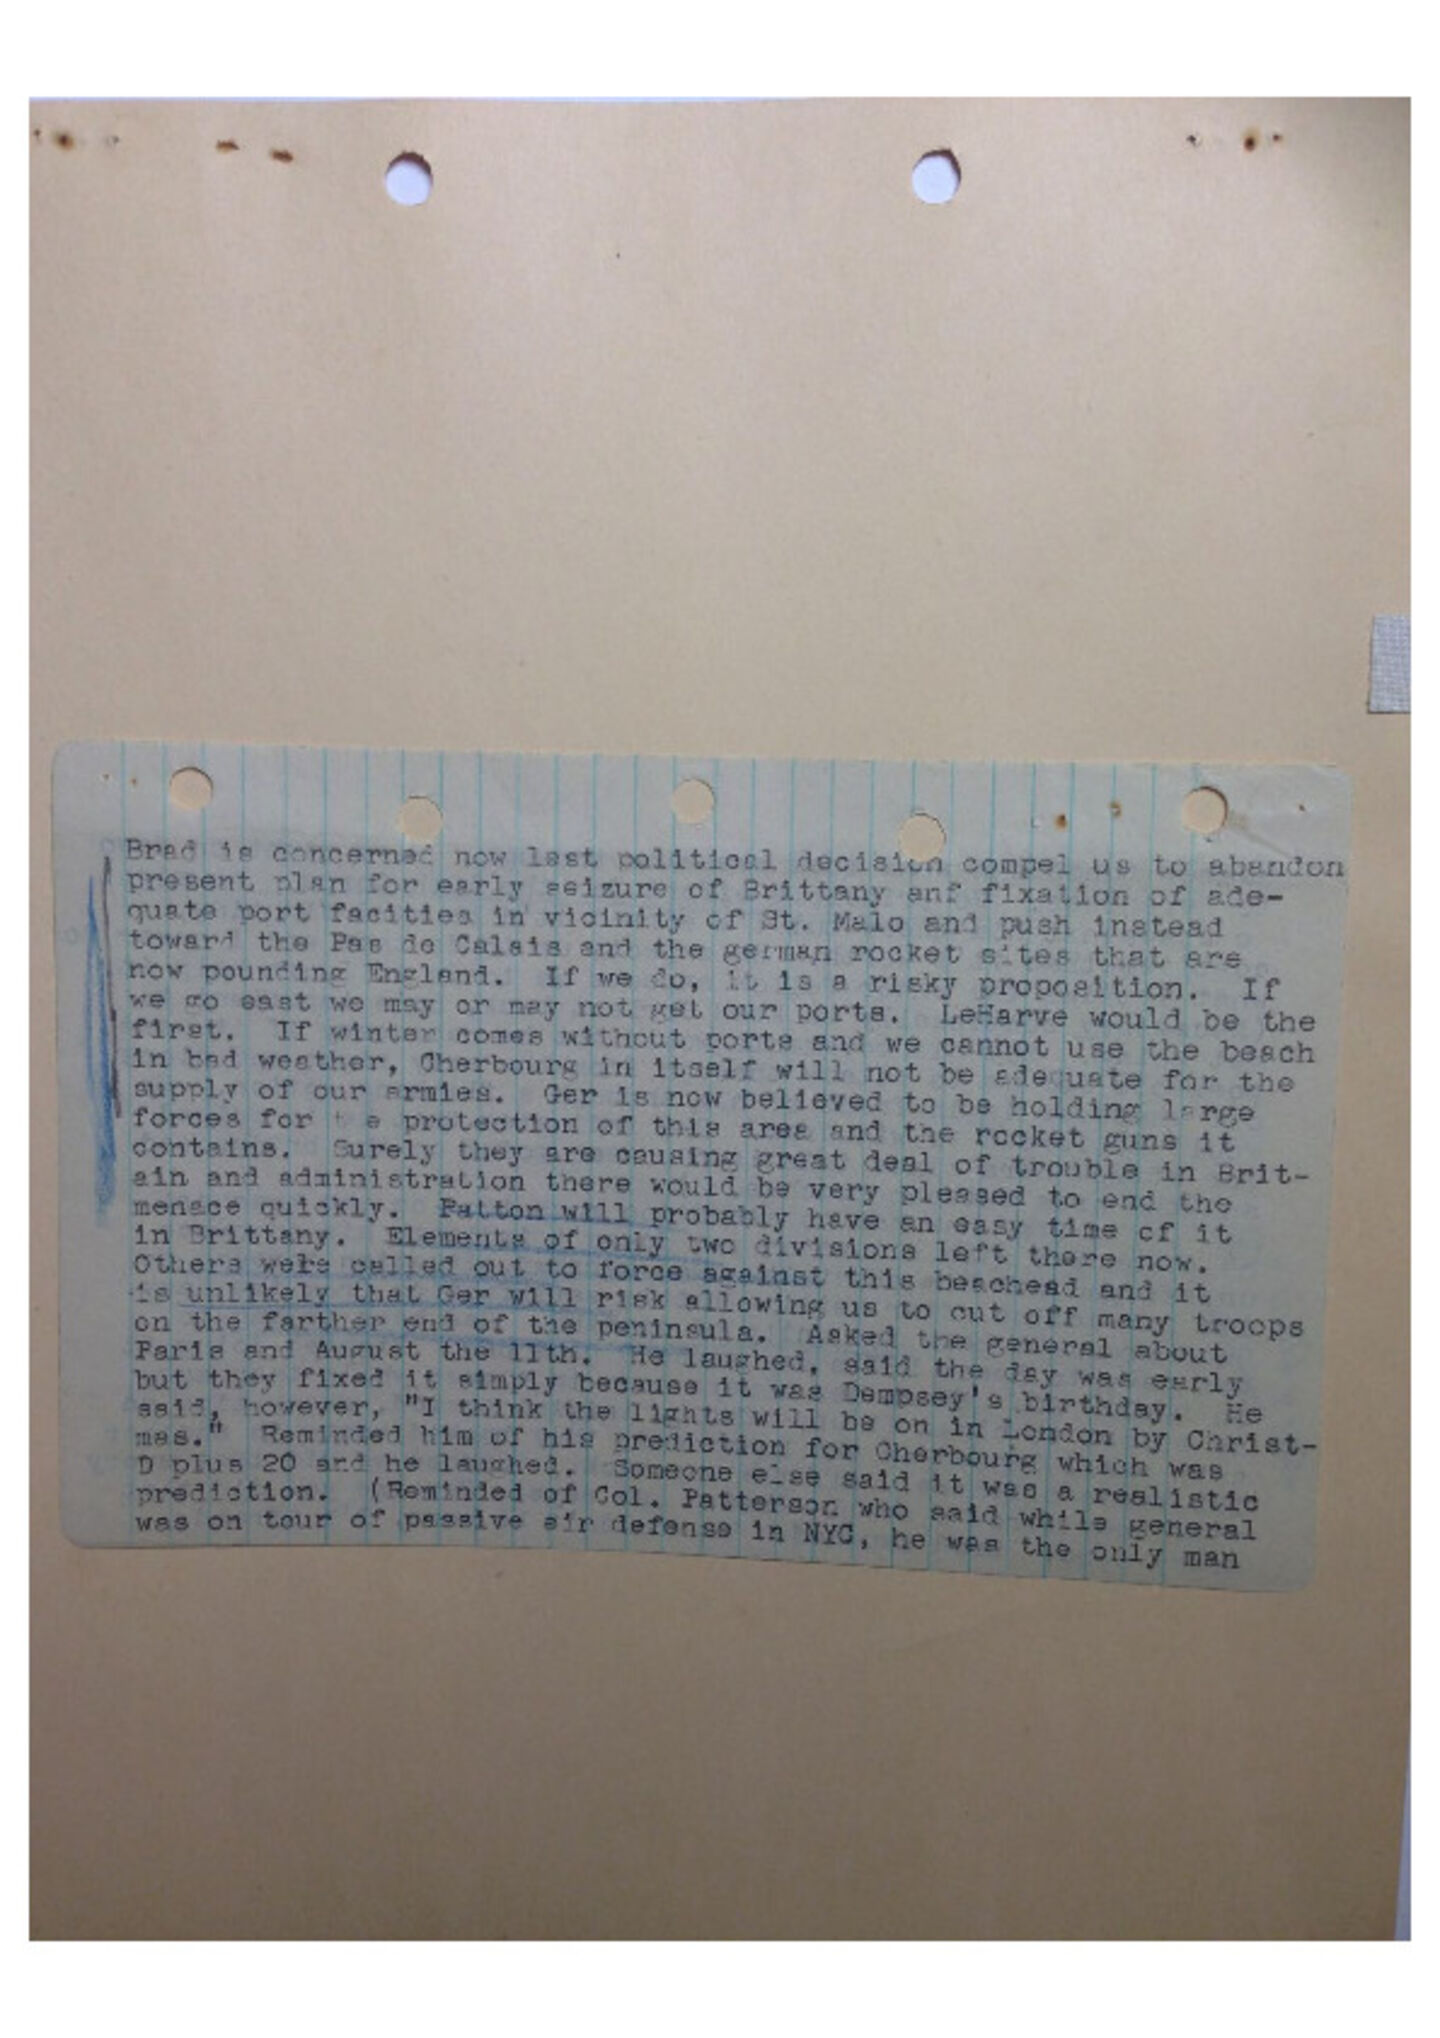 Brad is concerned now lest political decision compel us to abandon
present plan for early seizure of Brittany anf fixation of ade-
quate port facities in vicinity of St. Malo and push instead
toward the Pas de Calais and the german rocket sites that are
now pounding England. If we do, it is a risky proposition. If
we go east we may or may not get our ports. LeHarve would be the
first. If winter comes without ports and we cannot use the beach
in bad weather, Cherbourg in itself will not be adequate for the
supply of our armies. Ger is now believed to be holding large
forces for t e protection of this area and the rocket guns it
contains. Surely they are causing great deal of trouble in Brit-
ain and administration there would be very pleased to end the
menace quickly. Patton will probably have an easy time of it
in Brittany. Elements of only two divisions left there now.
Others were called out to force against this beachead and it
is unlikely that Ger will risk allowing us to cut off many troops
on the farther end of the peninsula. Asked the general about
Paris and August the 11th. He laughed, said the day was early
but they fixed it simply because it was Dempsey's birthday. He
said, however, "I think the lights will be on in London by Christ-
mas." Reminded him of his prediction for Cherbourg which was
D plus 20 and he laughed. Someone else said it was a realistic
prediction. (Reminded of Col. Patterson who said while general
was on tour of passive air defense in NYC, he was the only man